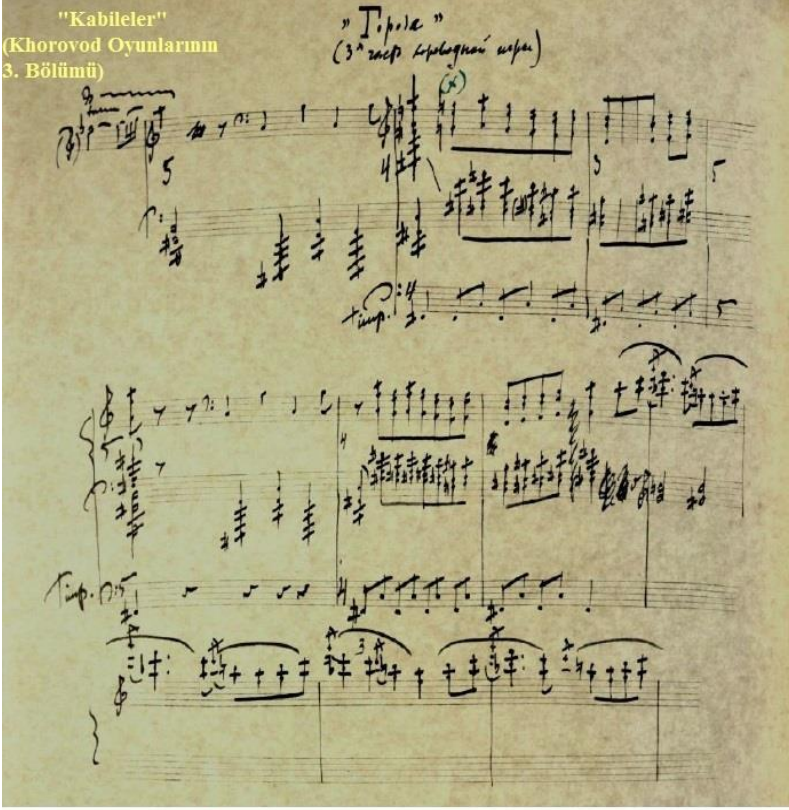 "Kabileler"
(Khorovod Oyunlarının
3. Bölümü)
„Города”
(3я часть хороводной игры)
(x)
5 4 3 5
timp. 4 5
4
Timp. 5 4
3